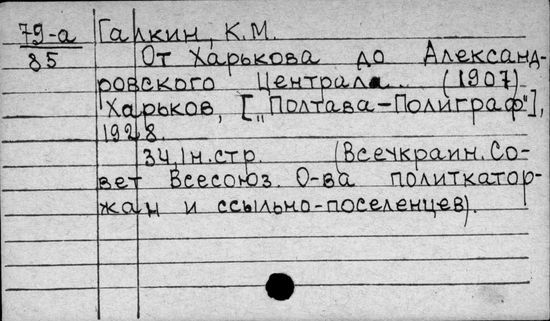 79-а Галкин, К.М.
85 От Харькова до Александ-
ровского Централа. (1907)
Харьков, ["Полтава-Полиграф"],
1928.
34,1н.стр. (Всеукраин.Со-
вет Всесоюз. О-ва политкатор-
жан и ссыльно-поселенцев).